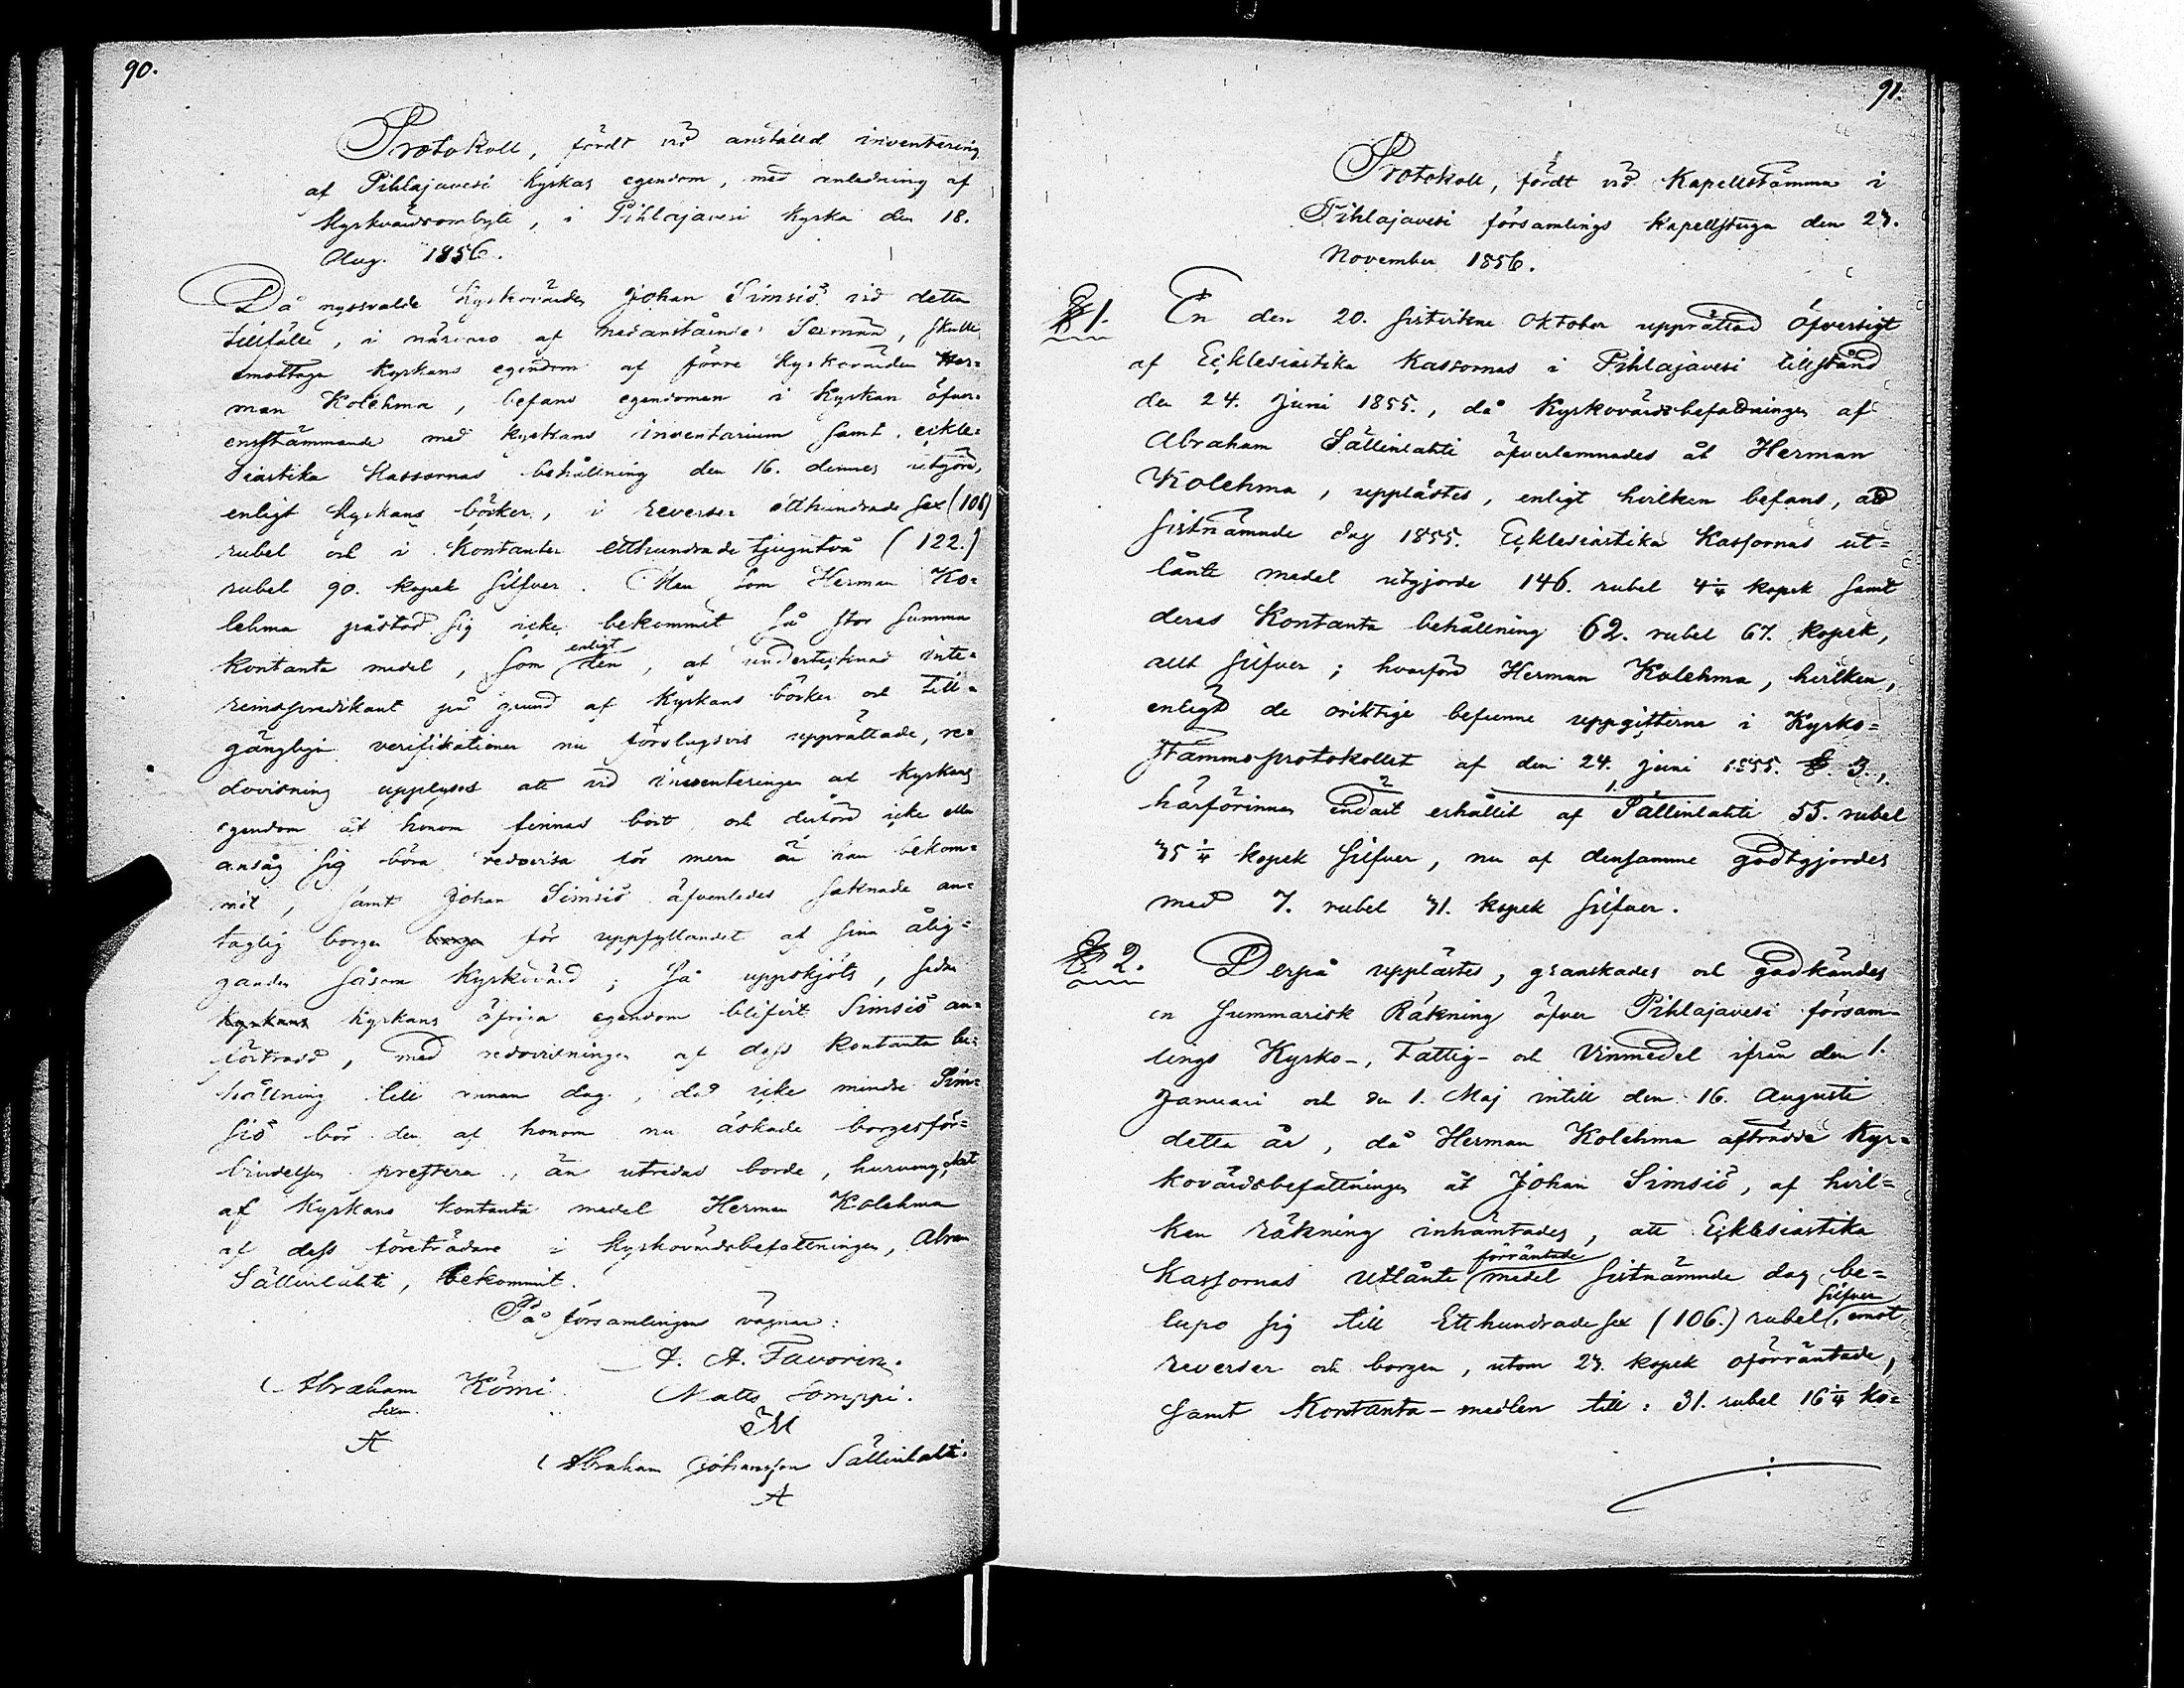 90.
Protokoll, fördt vid anstäld inventering
af Pihlajavesi Kyrkas egendom, med anledning af
Kyrkvärdsombyte, i Pihlajavesi Kyrka den 18.
Aug. 1856.
Då nyssvalde Kyrkovärden Johan Simsiö vid detta
tillfälle, i närvaro af nedanstående Sexmän, skulle
emottaga Kyrkans egendom af förre Kyrkovärden Her=
man Kolehma, befans egendomen i Kyrkan öfver=
ensstämmande med kyrkans inventarium samt eckle=
siastika Kassornas behållning den 16. dennes utgöra,
enligt Kyrkans böcker, i reverser etthundrade sex (106)
rubel och i Kontanter etthundrade tjugutvå (122.)
rubel 90. kopek silfver. Men som Herman Ko=
lehma påstod sig icke bekommit så stor summa
kontanta medel, som enligt den, af undertecknad inte=
rimspredikant på grund af Kyrkans böcker och till=
gängliga verifikationer nu förslagsvis upprättade, re=
dovisning upplyses att vid inventeringen af Kyrkans
egendom åt honom finnas bort och derförd icke eller
ansåg sig böra redovisa för mera än han bekom=
mit, samt Johan Simsiö äfvenledes saknade an=
taglig borgen borgen för uppfyllandet af sina ålig=
ganden såsom Kyrkvärd; så uppskjöts, sedan
Kyrkans Kyrkans öfriga egendom blifvit Simsiö an=
förtrodd, med redovisningen af dess kontanta be=
hållning till annan dag, då icke mindre Sim=
siö bör den af honom nu äskade borgesför=
bindelsen prestera, än utredas borde, huru mycket
af Kyrkans kontanta medel Herman Kolehma
af dess företrädare i Kyrkovärdsbefattningen, Abram
Sällinlahti, bekommit.
På församlingens vägnar:
A. A. Favorin.
Abraham Kömi Matts Somppi.
Sexm.
A M
Abraham Johansson Sällinlahti.
A
91.
Protokoll, fördt vid Kapellstämma i
Pihlajavesi församlings Kapellstuga den 23.
November 1856.
§ 1. En den 20. sistvikne Oktober upprättad öfversigt
af Ecklesiastika Kassornas i Pihlajavesi tillstånd
den 24. Juni 1855., då Kyrkovärdsbefattningen af
Abraham Sällinlahti öfverlemnades åt Herman
Kolehma, upplästes, enligt hvilken befans, att
sistnämnde dag 1855. Ecklesiastika Kassornas ut=
lånte medel utgjorde 146. rubel 4 1/4 kopek samt
deras Kontanta behållning 62. rubel 67. kopek,
allt silfver; hvarföre Herman Kolehma, hvilken,
enligt de oriktige befunne uppgifterne i Kyrko=
stämmoprotokollet af den 24. Juni 1855. § 3.,
härförinnan endast erhållit af Sällinlahti 55. rubel
35 1/4 kopek silfver, nu af densamme godtgjordes
med 7. rubel 31. kopek silfver.
§ 2. Derpå upplästes, granskades och godkändes
en summarisk Räkning öfver Pihlajavesi försam=
lings Kyrko-, Fattig- och Vinmedel ifrån den 1.
Januari och den 1. Maj intill den 16. Augusti
detta år, då Herman Kolehma afträdde Kyr=
kovärdsbefattningen åt Johan Simsiö, af hvil=
ken räkning inhämtades, att Ecklesiastika
Kassornas utlånte förräntade medel sistnämnde dag be=
lupo sig till Etthundrade sex (106.) rubel silfver, emot
reverser och borgen, utom 23. kopek oförräntade,
samt Kontanta-medlen till: 31. rubel 16 1/4 ko=